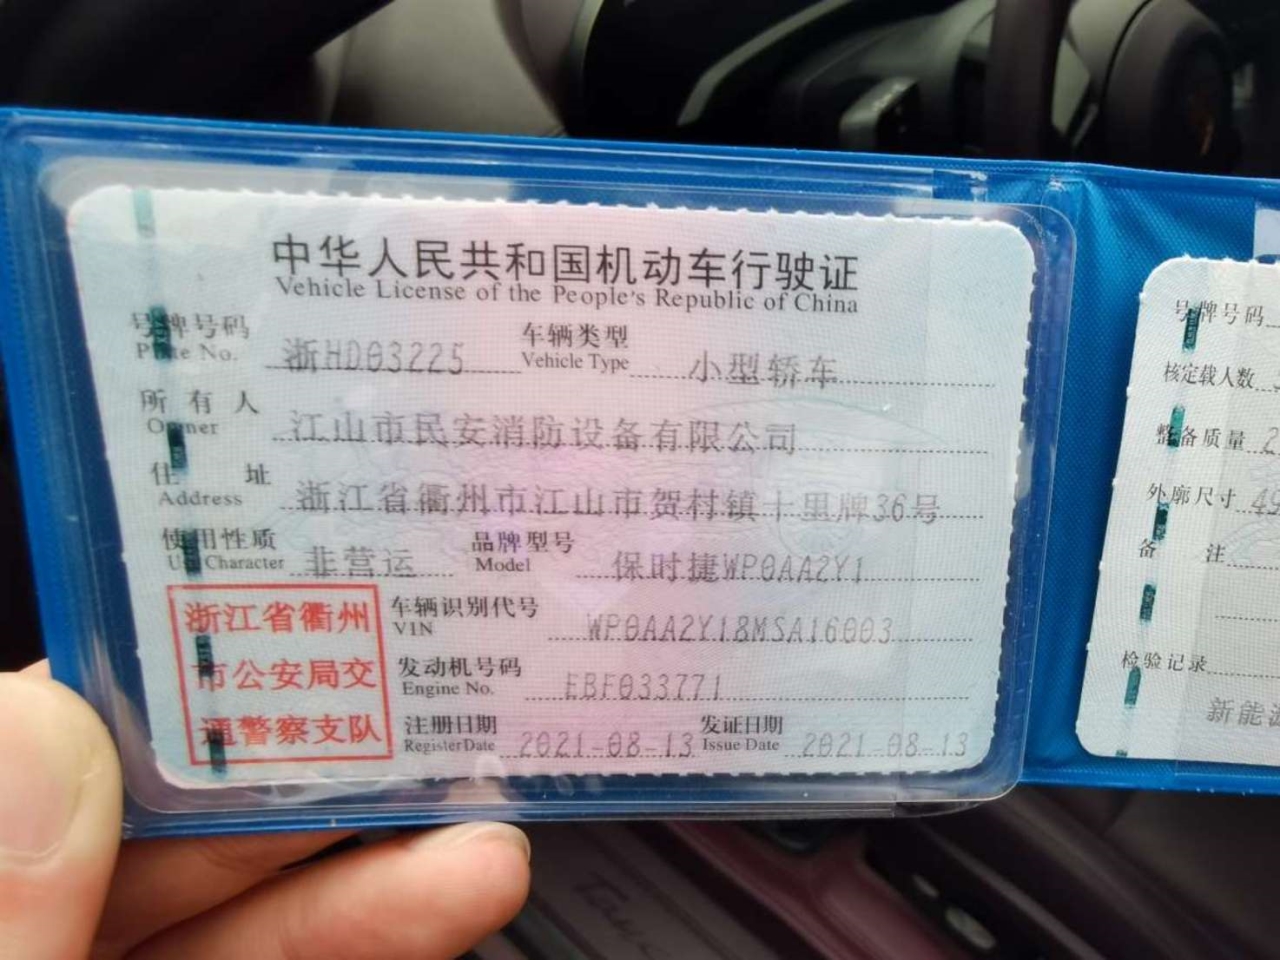 中华人民共和国机动车行驶证
Vehicle License of the People's Republic of China
号牌号码 浙HD03225 车辆类型 小型轿车
Plate No. Vehicle Type
所有人 江山市民安消防设备有限公司
Owner
住址 浙江省衢州市江山市贺村镇十里牌36号
Address
使用性质 非营运 品牌型号 保时捷WP0AA2Y1
Use Character Model
浙江省衢州
市公安局交
通警察支队
车辆识别代号 WP0AA2Y18MSA16003
VIN
发动机号码 EBF033771
Engine No.
注册日期 2021-08-13 发证日期 2021-08-13
Register Date Issue Date
号牌号码
核定载人数
整备质量 2
外廓尺寸 49
备注
检验记录
新能源